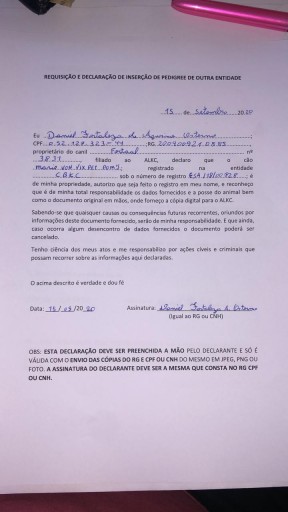 REQUISIÇÃO E DECLARAÇÃO DE INSERÇÃO DE PEDIGREE DE OUTRA ENTIDADE
15 de Setembro 20 20
Eu Daniel Fortaleza de Aquino Veterno ;
CPF 052.128.323-44 ; RG
proprietário do canil Fortaal nº
3831 filiado ao ALKC, declaro que o cão
registrado na entidade
CBKC sob o número de registro ; é
de minha propriedade, autorizo que seja feito o registro em meu nome, e reconheço
que é de minha total responsabilidade os dados fornecidos e a posse do animal bem
como o documento original em mãos, onde forneço a cópia digital para o ALKC.
Sabendo-se que quaisquer causas ou consequências futuras recorrentes, oriundos por
informações deste documento fornecido, serão de minha responsabilidade. E que ainda,
caso ocorra algum desencontro de dados fornecidos o documento poderá ser
cancelado.
Tenho ciência dos meus atos e me responsabilizo por ações cíveis e criminais que
possam recorrer as informações aqui declaradas.
O acima descrito é verdade e dou fé
Data: 15 / 09 /20 20 Assinatura: Daniel Fortaleza A.
(Igual ao RG ou CNH)
OBS: ESTA DECLARAÇÃO DEVE SER PREENCHIDA A MÃO PELO DECLARANTE E SÓ É
VÁLIDA COM O ENVIO DAS CÓPIAS DO RG E CPF OU CNH DO MESMO EM JPEG, PNG OU
FOTO. A ASSINATURA DO DECLARANTE DEVE SER A MESMA QUE CONSTA NO RG CPF
OU CNH.